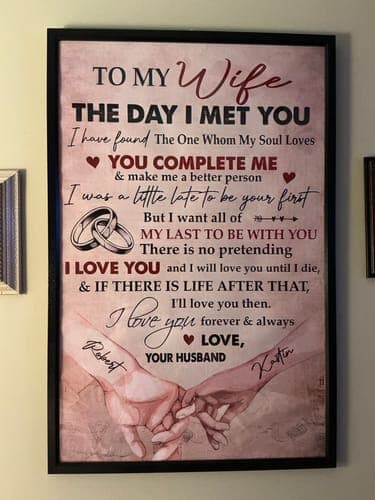 TO MY Wife
THE DAY I MET YOU
I have found The One Whom My Soul Loves
YOU COMPLETE ME
& make me a better person
I was a little late to be your first
But I want all of
MY LAST TO BE WITH YOU
There is no pretending
I LOVE YOU and I will love you until I die,
& IF THERE IS LIFE AFTER THAT,
I'll love you then.
I love you forever & always
LOVE,
YOUR HUSBAND
Robert
Kristin